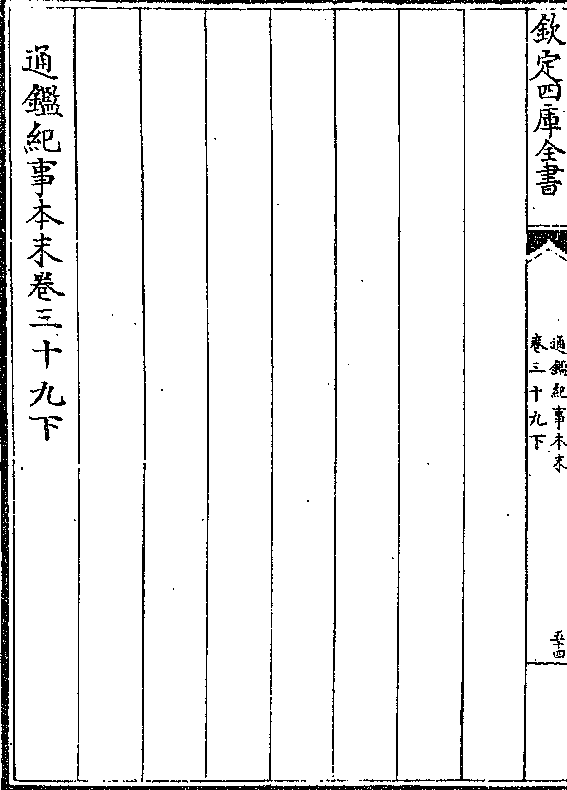 欽定四庫全書
通鑑紀事本末
卷三十九下
五十四
通鑑紀事本末卷三十九下